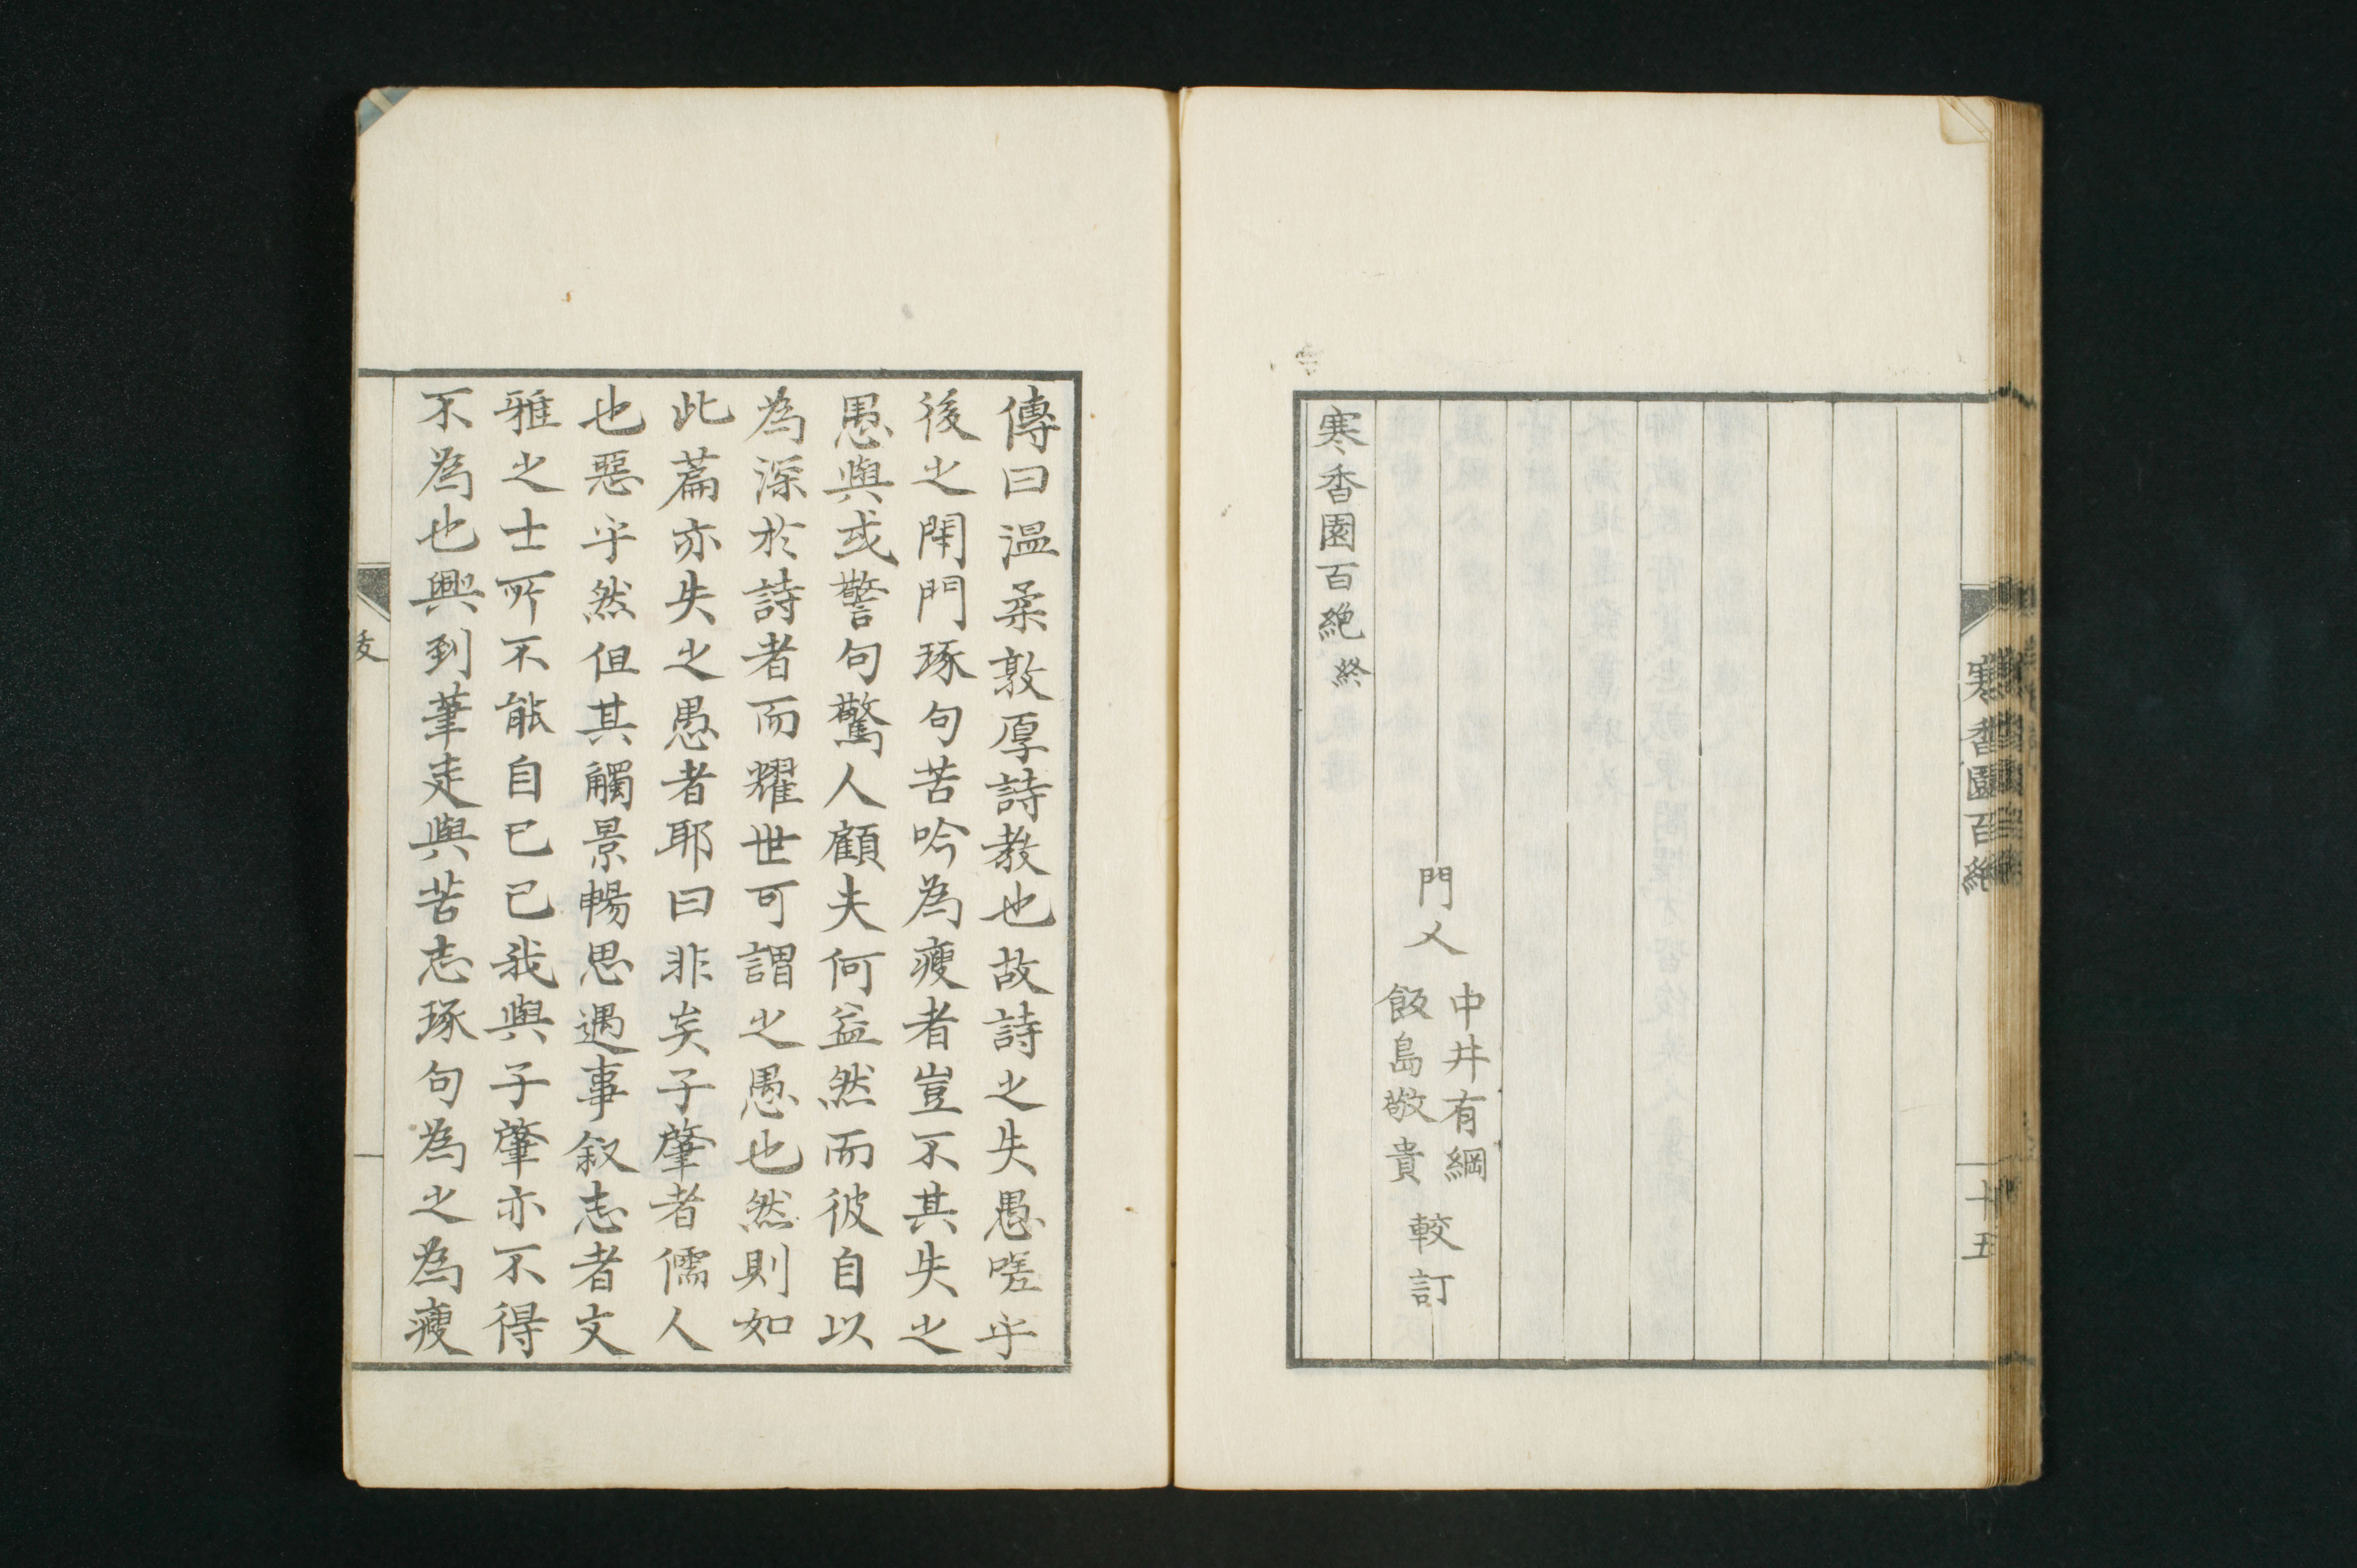 門人
中井有綱
飯島敬貴
較訂
寒香園百絶終
寒香園百絶
十五
傳曰溫柔敦厚詩教也故詩之失愚嗟乎
後之閉門琢句苦吟為瘦者豈不其失之
愚與或警句驚人顧夫何益然而彼自以
為深於詩者而耀世可謂之愚也然則如
此篇亦失之愚者耶曰非矣子肇者儒人
也惡乎然但其觸景暢思遇事叙志者文
雅之士所不能自已已我與子肇亦不得
不為也興到筆走與苦志琢句為之為瘦